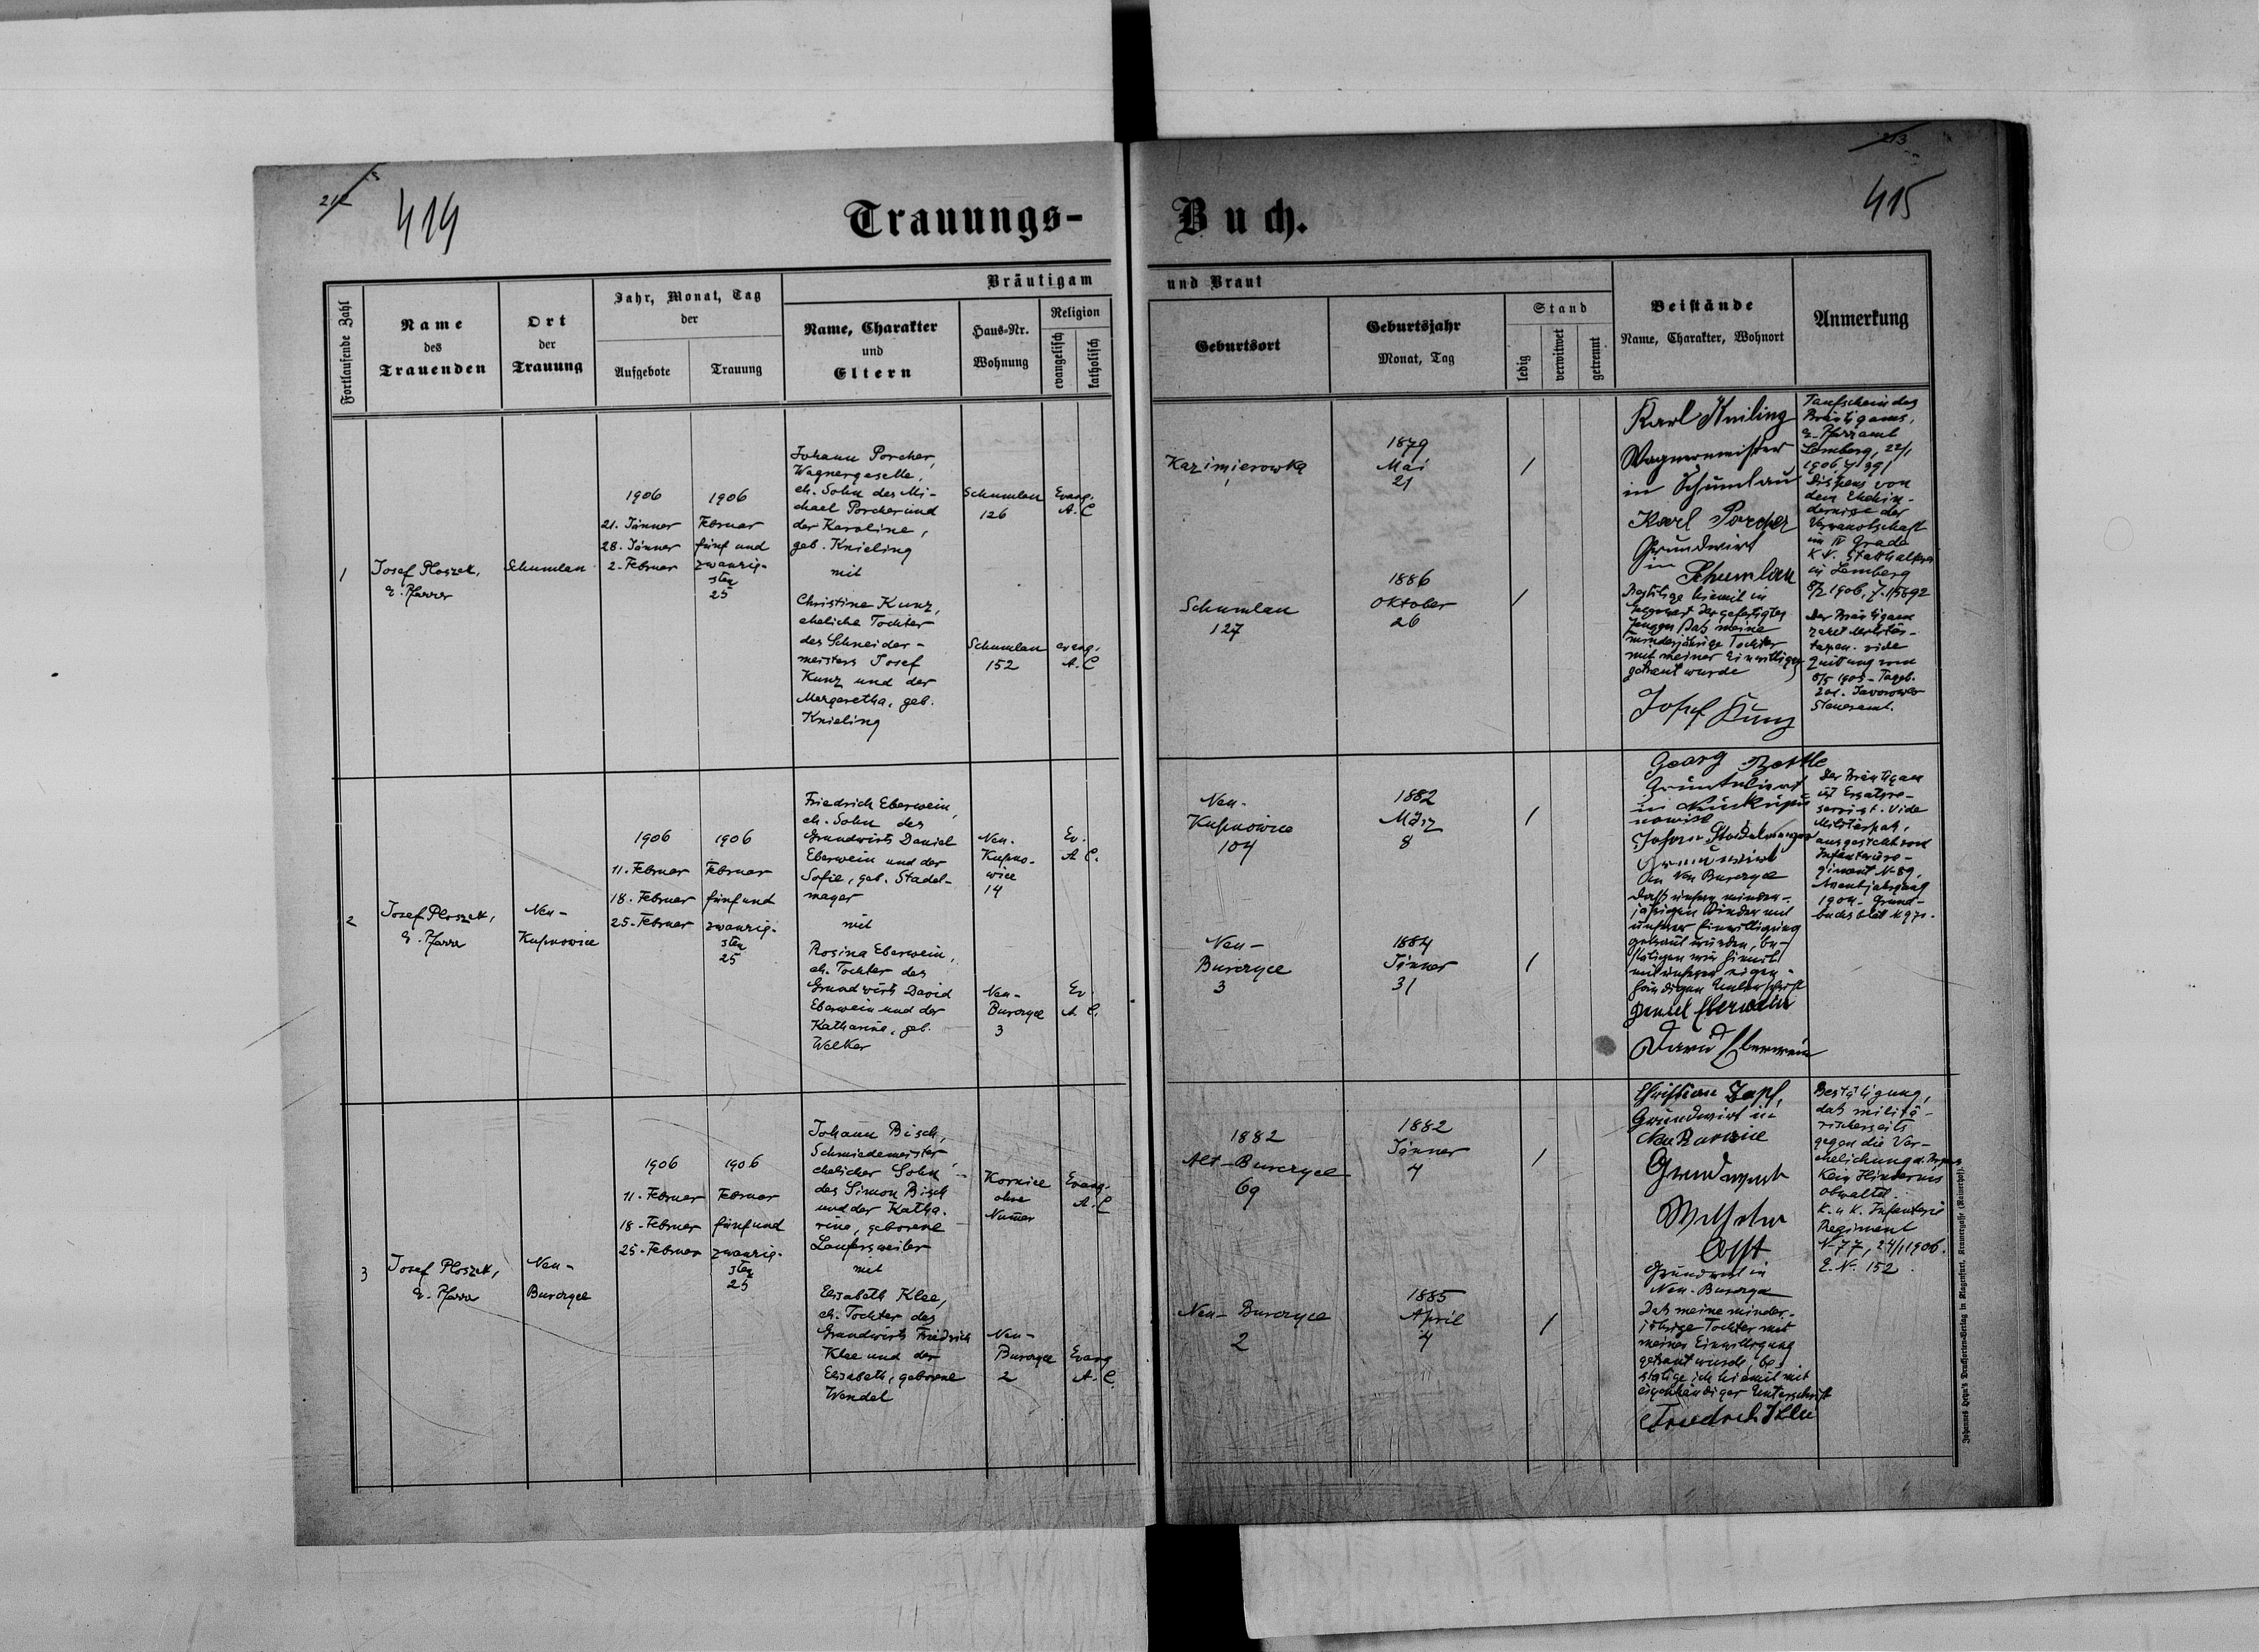 212
414
213
415
Trauungs-Buch.
Fortlaufende Zahl
Name
des
Trauenden
Ort
der
Trauung
Jahr, Monat, Tag
der
Aufgebote
Trauung
Bräutigam und Braut
Name, Charakter
und
Eltern
Haus-Nr.
Wohnung
Religion
evangelisch
katholisch
Geburtsort
Geburtsjahr
Monat, Tag
Stand
ledig
verwitwet
getrennt
Beistände
Name, Charakter, Wohnort
Anmerkung
1
Josef Ploszek,
E. Pfarrer
Schumlau
1906
21. Jänner
28. Jänner
2. Februar
1906
Februar
fünf und
zwanzig-
sten
25
Johann Porcher,
Wagnergeselle,
eh. Sohn des Mi-
chael Porcher und
der Karoline,
geb. Knieling
mit
Christine Kunz,
eheliche Tochter
des Schneider-
meisters Josef
Kunz und der
Margaretha, geb.
Knieling
Schumlau
126
Evang.
A. C
Schumlau
152
evang.
A. C
Kazimierowka
1879
Mai
21
/
Schumlau
127
1886
Oktober
26
/
Karl Kniling
Wagnermeister
in Schumlau
Karl Porcher
Grundwirt
in Schumlau
Bestätige hiemit in
Gegenwart der gefertigten
Zeugen daß meine
minderjährige Tochter
mit meiner Einwilligung
getraut wurde
Josef Kunz
Taufschein des
Bräutigams,
E. Pfarramt
Lemberg, 22/1
1906, Z 391
Dispens von
dem Ehehin-
dernisse der
Verwandtschaft
im IV Grade
K. K. Statthalterei
in Lemberg
8/2 1906, Z. 15692
Der Bräutigam
zahlt Militär-
taxen. vide
Quittung vom
8/5 1905 - Tageb.
201. Javorower
Steueramt.
2
Josef Ploszek,
E. Pfarrer
Neu-
Kupnowice
1906
11. Februar
18. Februar
25. Februar
1906
Februar
fünf und
zwanzig-
sten
25
Friedrich Eberwein,
eh. Sohn des
Grundwirts Daniel
Eberwein und der
Sofie, geb. Stadel-
mayer
mit
Rosina Eberwein,
eh. Tochter des
Grundwirts David
Eberwein und der
Katharina, geb.
Welker
Neu-
Kupno-
wice
14
Ev.
A C.
Neu-
Burczyce
3
Ev.
A. C.
Neu-
Kupnowice
104
1882
März
8
/
Neu-
Burczyce
3
1884
Jänner
31
/
Georg
Grundwirt
in Neukup-
nowice
Johann Stadelmayer
Grundwirt
in Neu Burczyce
Daß unsere minder-
jährigen Kinder mit
unserer Einwilligung
getraut wurden, be-
stätigen wir hiemit
mit unserer eigen-
händigen Unterschrift
Daniel Eberwein
David Eberwein
Der Bräutigam
ist Ersatzre-
servist. Vide
Militärpaß,
ausgestellt vom
Infanteriere-
giment N-89,
Assentjahrgang
1904. Grund-
buchsblatt
3
Josef Ploszek,
E. Pfarrer
Neu-
Burczyce
1906
11. Februar
18. Februar
25. Februar
1906
Februar
fünf und
zwanzig-
sten
25
Johann Bisch,
Schmiedemeister,
ehelicher Sohn
des Simon Bisch
und der Katha-
rina, geborene
Laufersweiler
mit
Elisabeth Klee,
eh. Tochter des
Grundwirts Friedrich
Klee und der
Elisabeth, geborene
Wendel
Kornice
ohne
Numer
Evang.
A. C
Neu-
Burczyce
2
Evang
A. C.
1882
Alt-Burczyce
69
1882
Jänner
4
/
Neu-Burczyce
2
1885
April
4
/
Christian Zapf,
Grundwirt in
Neu Burczice
Grundwirt
Wilhelm
Opst
Grundwirt in
Neu-Burczyce
Daß meine minder-
jährige Tochter mit
meiner Einwilligung
getraut wurde, be-
stätige ich hiemit mit
eigenhändiger Unterschrift
Friedrich Klee
Bestätigung,
daß militä-
rischerseits
gegen die Ver-
ehelichung
kein Hindernis
obwaltet.
K. u K. Infanterie
Regiment
N-77, 24/1 1906.
E. N. 152.
Johannes Heyn's Drucksorten-Verlag in Klagenfurt, Kramergasse (Rainerhof).